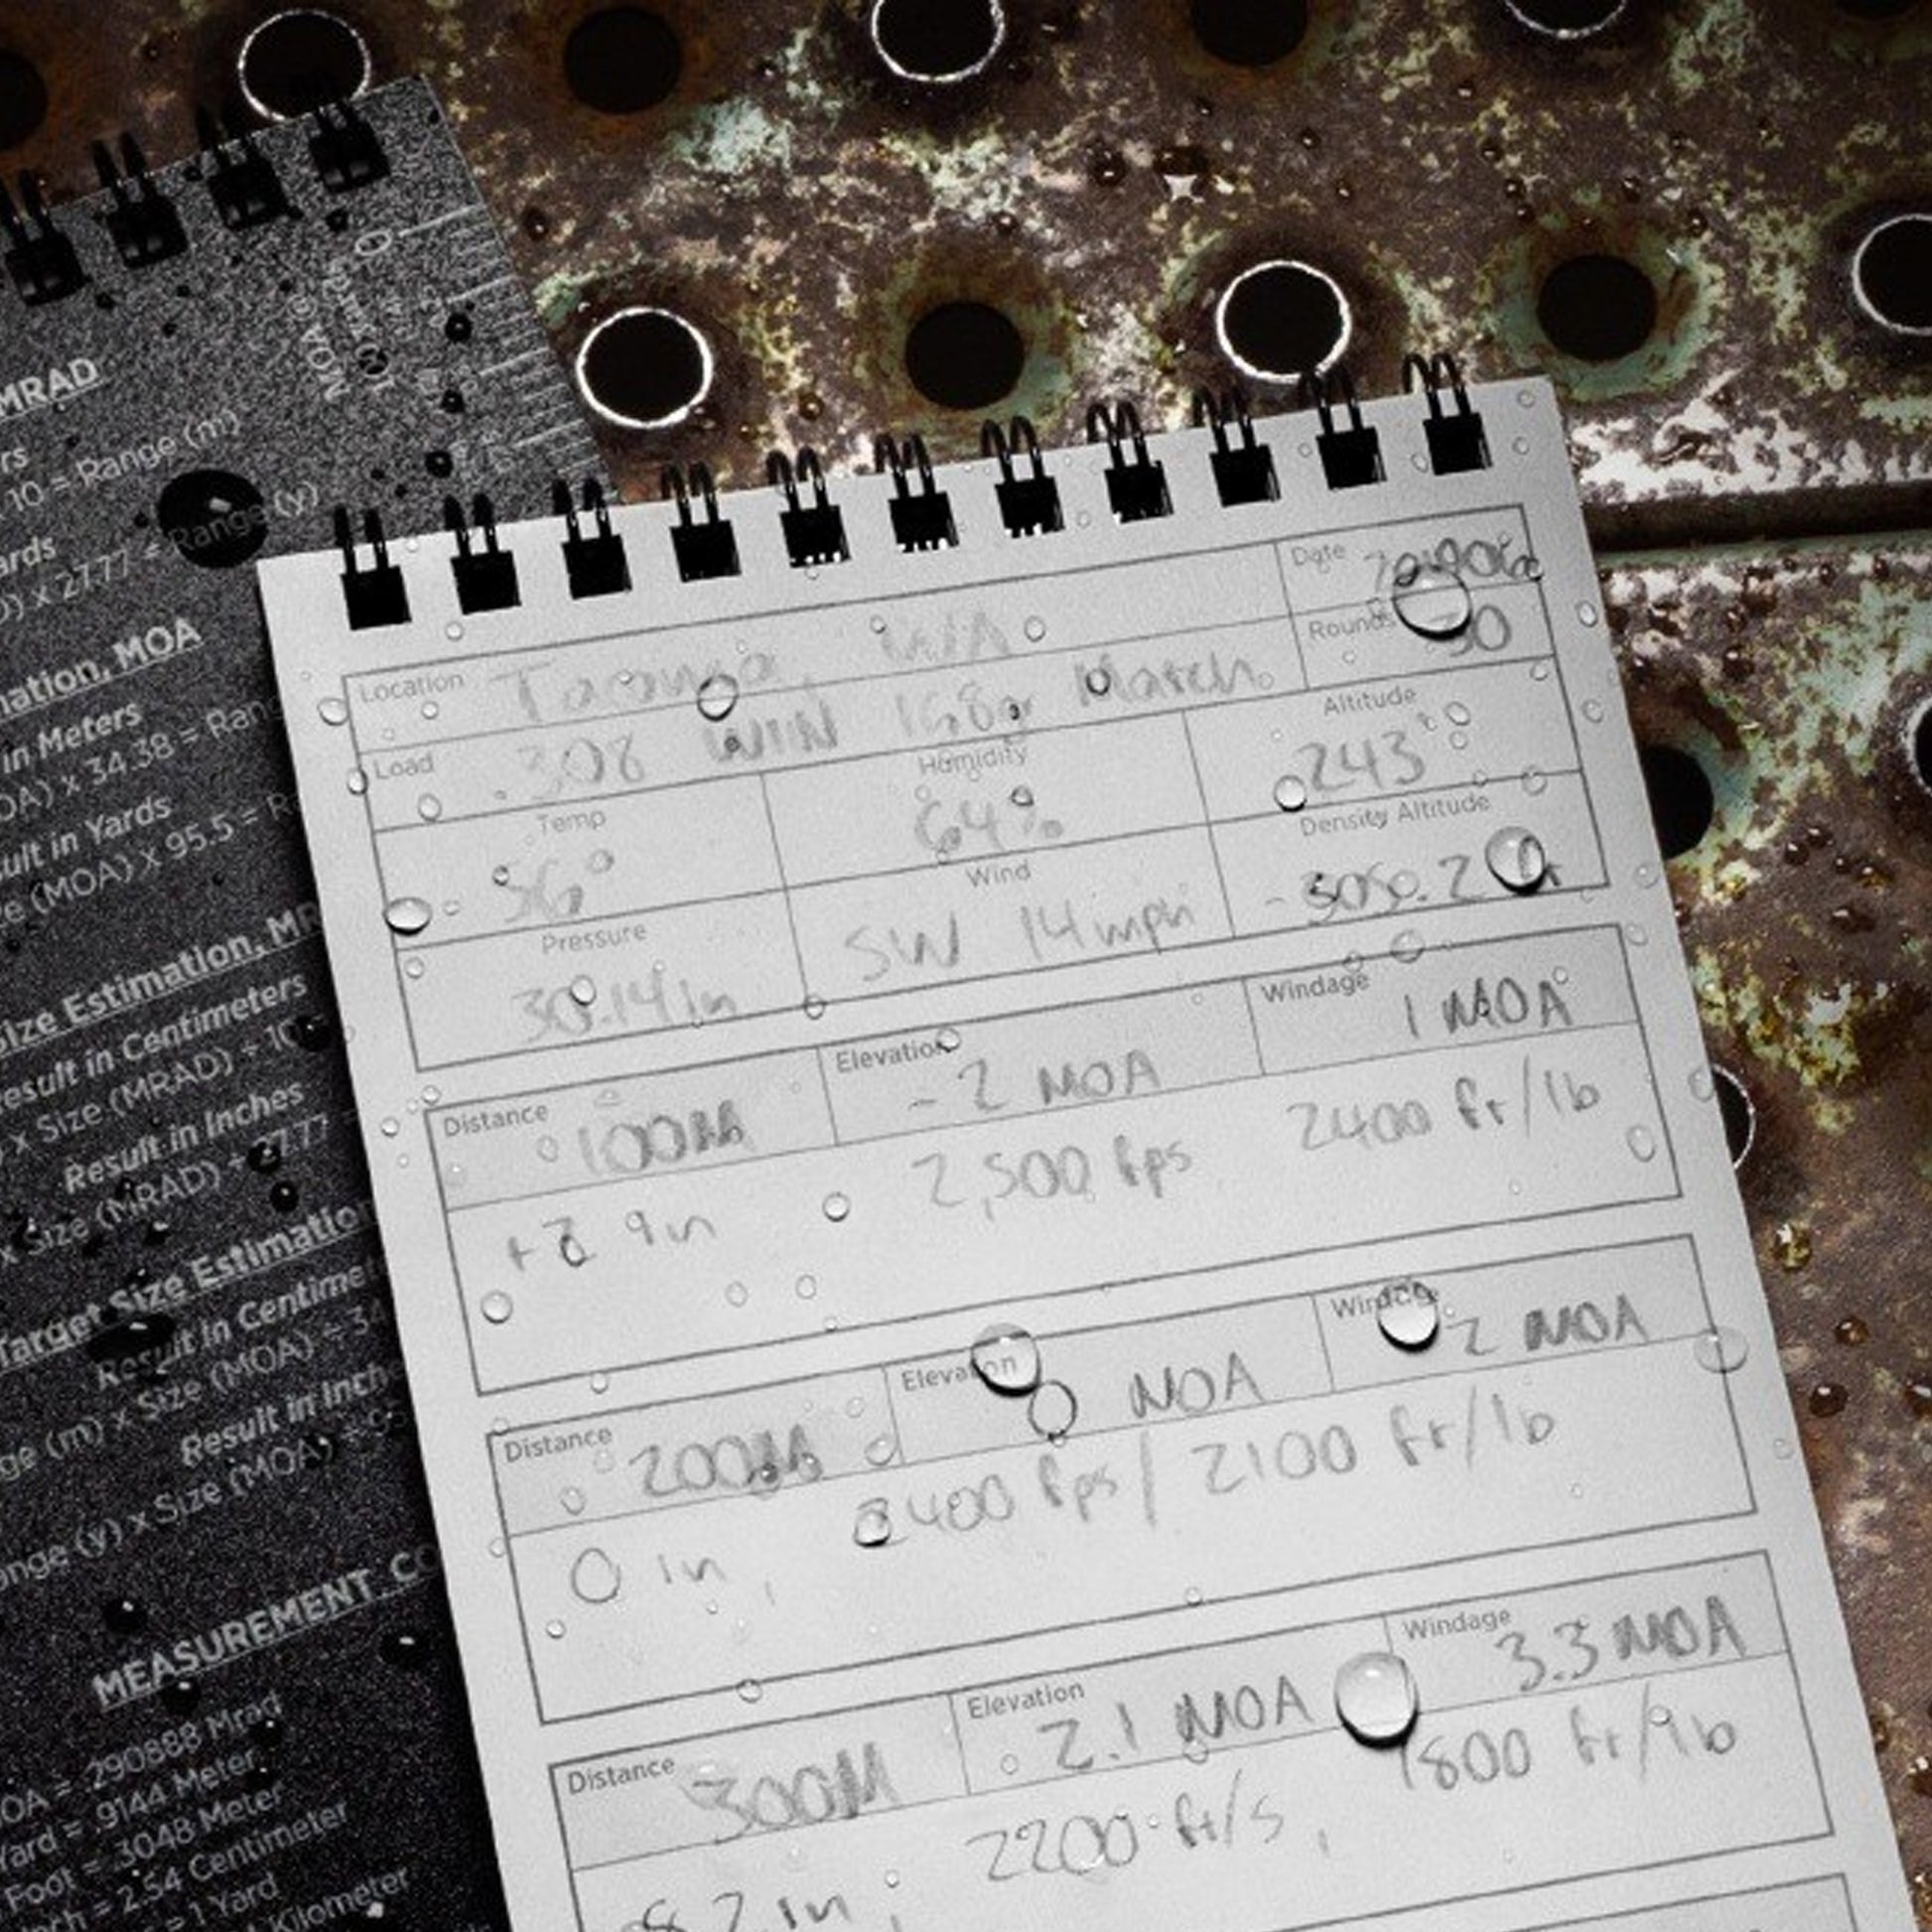 MRAD
10 = Range (m)
x 27.77 = Range (y)
MOA
in Meters
x 34.38 =
Yards
(MOA) x 95.5 =
Size Estimation,
Result in Centimeters
x Size (MRAD) ÷ 10
Result in Inches
x Size (MRAD) ÷ 27.77
Target Size Estimation
Result in
x Size (MOA) ÷
Result in
(y) x Size (MOA)
MEASUREMENT
= .290888 Mrad
Yard = .9144 Meter
Foot = .3048 Meter
= 2.54 Centimeter
= 1 Yard
Kilometer
Date
Location Tacoma, WA
Rounds
Load .308 WIN 168gr Match
Temp 56°
Humidity 64%
Altitude 243
Pressure 30.14 in
Wind SW 14mph
Density Altitude
Distance 100M
Elevation - 2 MOA
Windage 1 MOA
2,500 fps 2400 ft/lb
in
Distance 200M
Elevation 0 MOA
Windage 2 MOA
2400 fps / 2100 ft/lb
0 in,
Distance 300M
Elevation 2.1 MOA
Windage 3.3 MOA
2200 ft/s, 1800 ft/lb
in